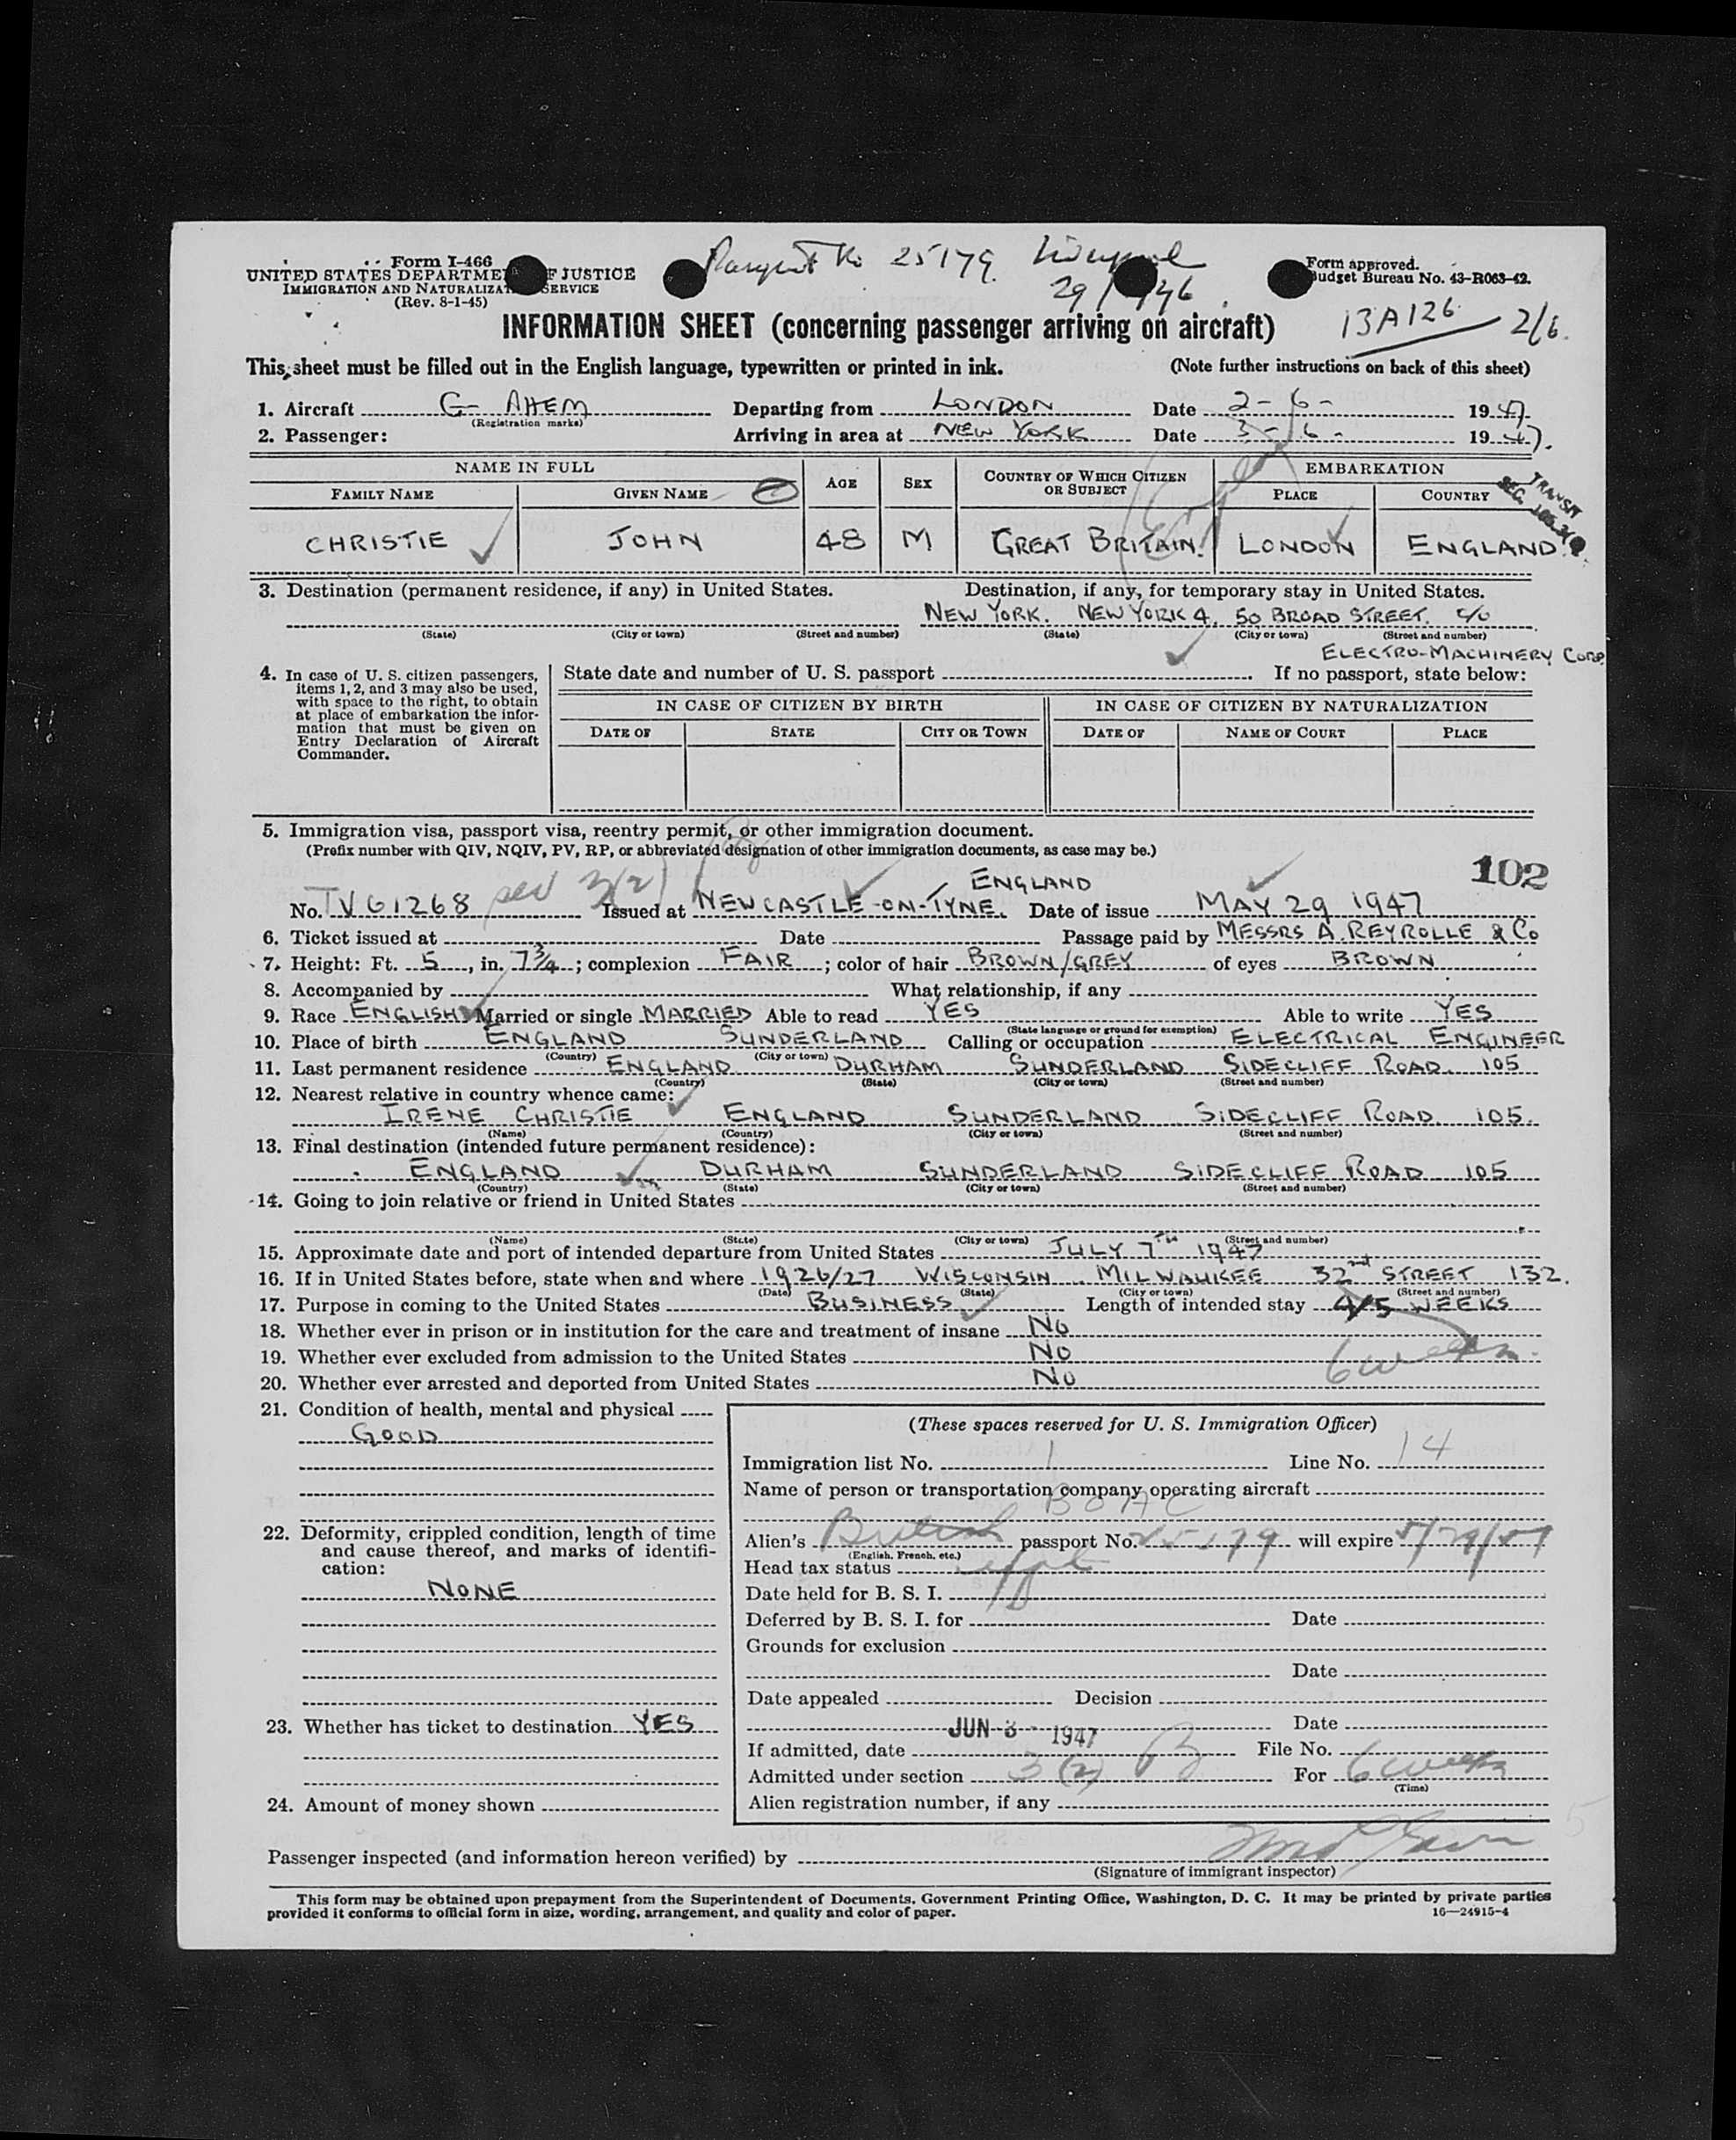 Form I-466
UNITED STATES DEPARTMENT OF JUSTICE
IMMIGRATION AND NATURALIZATION SERVICE
(Rev. 8-1-45)
25179. Liverpool
29
Form approved.
Budget Bureau No. 43-R063-42.
13A126 2/6.
INFORMATION SHEET (concerning passenger arriving on aircraft)
This sheet must be filled out in the English language, typewritten or printed in ink. (Note further instructions on back of this sheet)
1. Aircraft G-AHEM Departing from LONDON Date 2-6- 1947
(Registration marks)
2. Passenger: Arriving in area at NEW YORK Date 3-6- 1947.
NAME IN FULL AGE SEX COUNTRY OF WHICH CITIZEN OR SUBJECT EMBARKATION
FAMILY NAME GIVEN NAME PLACE COUNTRY
TRANSIT
SEC.
CHRISTIE JOHN 48 M GREAT BRITAIN. LONDON ENGLAND.
3. Destination (permanent residence, if any) in United States. Destination, if any, for temporary stay in United States.
NEW YORK. NEW YORK 4, 50 BROAD STREET. c/o
(State) (City or town) (Street and number) (State) (City or town) (Street and number)
ELECTRO-MACHINERY CORP.
4. In case of U. S. citizen passengers, items 1, 2, and 3 may also be used, with space to the right, to obtain at place of embarkation the information that must be given on Entry Declaration of Aircraft Commander.
State date and number of U. S. passport If no passport, state below:
IN CASE OF CITIZEN BY BIRTH IN CASE OF CITIZEN BY NATURALIZATION
DATE OF STATE CITY OR TOWN DATE OF NAME OF COURT PLACE
5. Immigration visa, passport visa, reentry permit, or other immigration document.
(Prefix number with QIV, NQIV, PV, RP, or abbreviated designation of other immigration documents, as case may be.)
102
ENGLAND
No. TV61268 3(2) Issued at NEWCASTLE-ON-TYNE. Date of issue MAY 29 1947
6. Ticket issued at Date Passage paid by MESSRS A. REYROLLE & Co
7. Height: Ft. 5, in. 7 3/4; complexion FAIR; color of hair BROWN/GREY of eyes BROWN
8. Accompanied by What relationship, if any
9. Race ENGLISH Married or single MARRIED Able to read YES Able to write YES
(State language or ground for exemption)
10. Place of birth ENGLAND SUNDERLAND Calling or occupation ELECTRICAL ENGINEER
(Country) (City or town)
11. Last permanent residence ENGLAND DURHAM SUNDERLAND SIDECLIFF ROAD. 105
(Country) (State) (City or town) (Street and number)
12. Nearest relative in country whence came:
IRENE CHRISTIE ENGLAND SUNDERLAND SIDECLIFF ROAD. 105.
(Name) (Country) (City or town) (Street and number)
13. Final destination (intended future permanent residence):
ENGLAND DURHAM SUNDERLAND SIDECLIFF ROAD 105
(Country) (State) (City or town) (Street and number)
14. Going to join relative or friend in United States
(Name) (State) (City or town) (Street and number)
15. Approximate date and port of intended departure from United States JULY 7TH 1947
16. If in United States before, state when and where 1926/27 WISCONSIN MILWAUKEE 32nd STREET 132.
(Date) (State) (City or town) (Street and number)
17. Purpose in coming to the United States BUSINESS Length of intended stay 4/5 WEEKS
18. Whether ever in prison or in institution for the care and treatment of insane No
19. Whether ever excluded from admission to the United States No
6 weeks
20. Whether ever arrested and deported from United States No
21. Condition of health, mental and physical
GOOD
22. Deformity, crippled condition, length of time and cause thereof, and marks of identification:
NONE
23. Whether has ticket to destination YES
24. Amount of money shown
(These spaces reserved for U. S. Immigration Officer)
Immigration list No. 1 Line No. 14
Name of person or transportation company operating aircraft
BOAC
Alien's British passport No. 25179 will expire 5/29/51
(English, French, etc.)
Head tax status
Date held for B. S. I.
Deferred by B. S. I. for Date
Grounds for exclusion
Date
Date appealed Decision
Date
JUN 3 - 1947
If admitted, date File No.
Admitted under section 3(2) For 6 weeks
(Time)
Alien registration number, if any
Passenger inspected (and information hereon verified) by
(Signature of immigrant inspector)
This form may be obtained upon prepayment from the Superintendent of Documents, Government Printing Office, Washington, D. C. It may be printed by private parties
provided it conforms to official form in size, wording, arrangement, and quality and color of paper. 16—24915-4